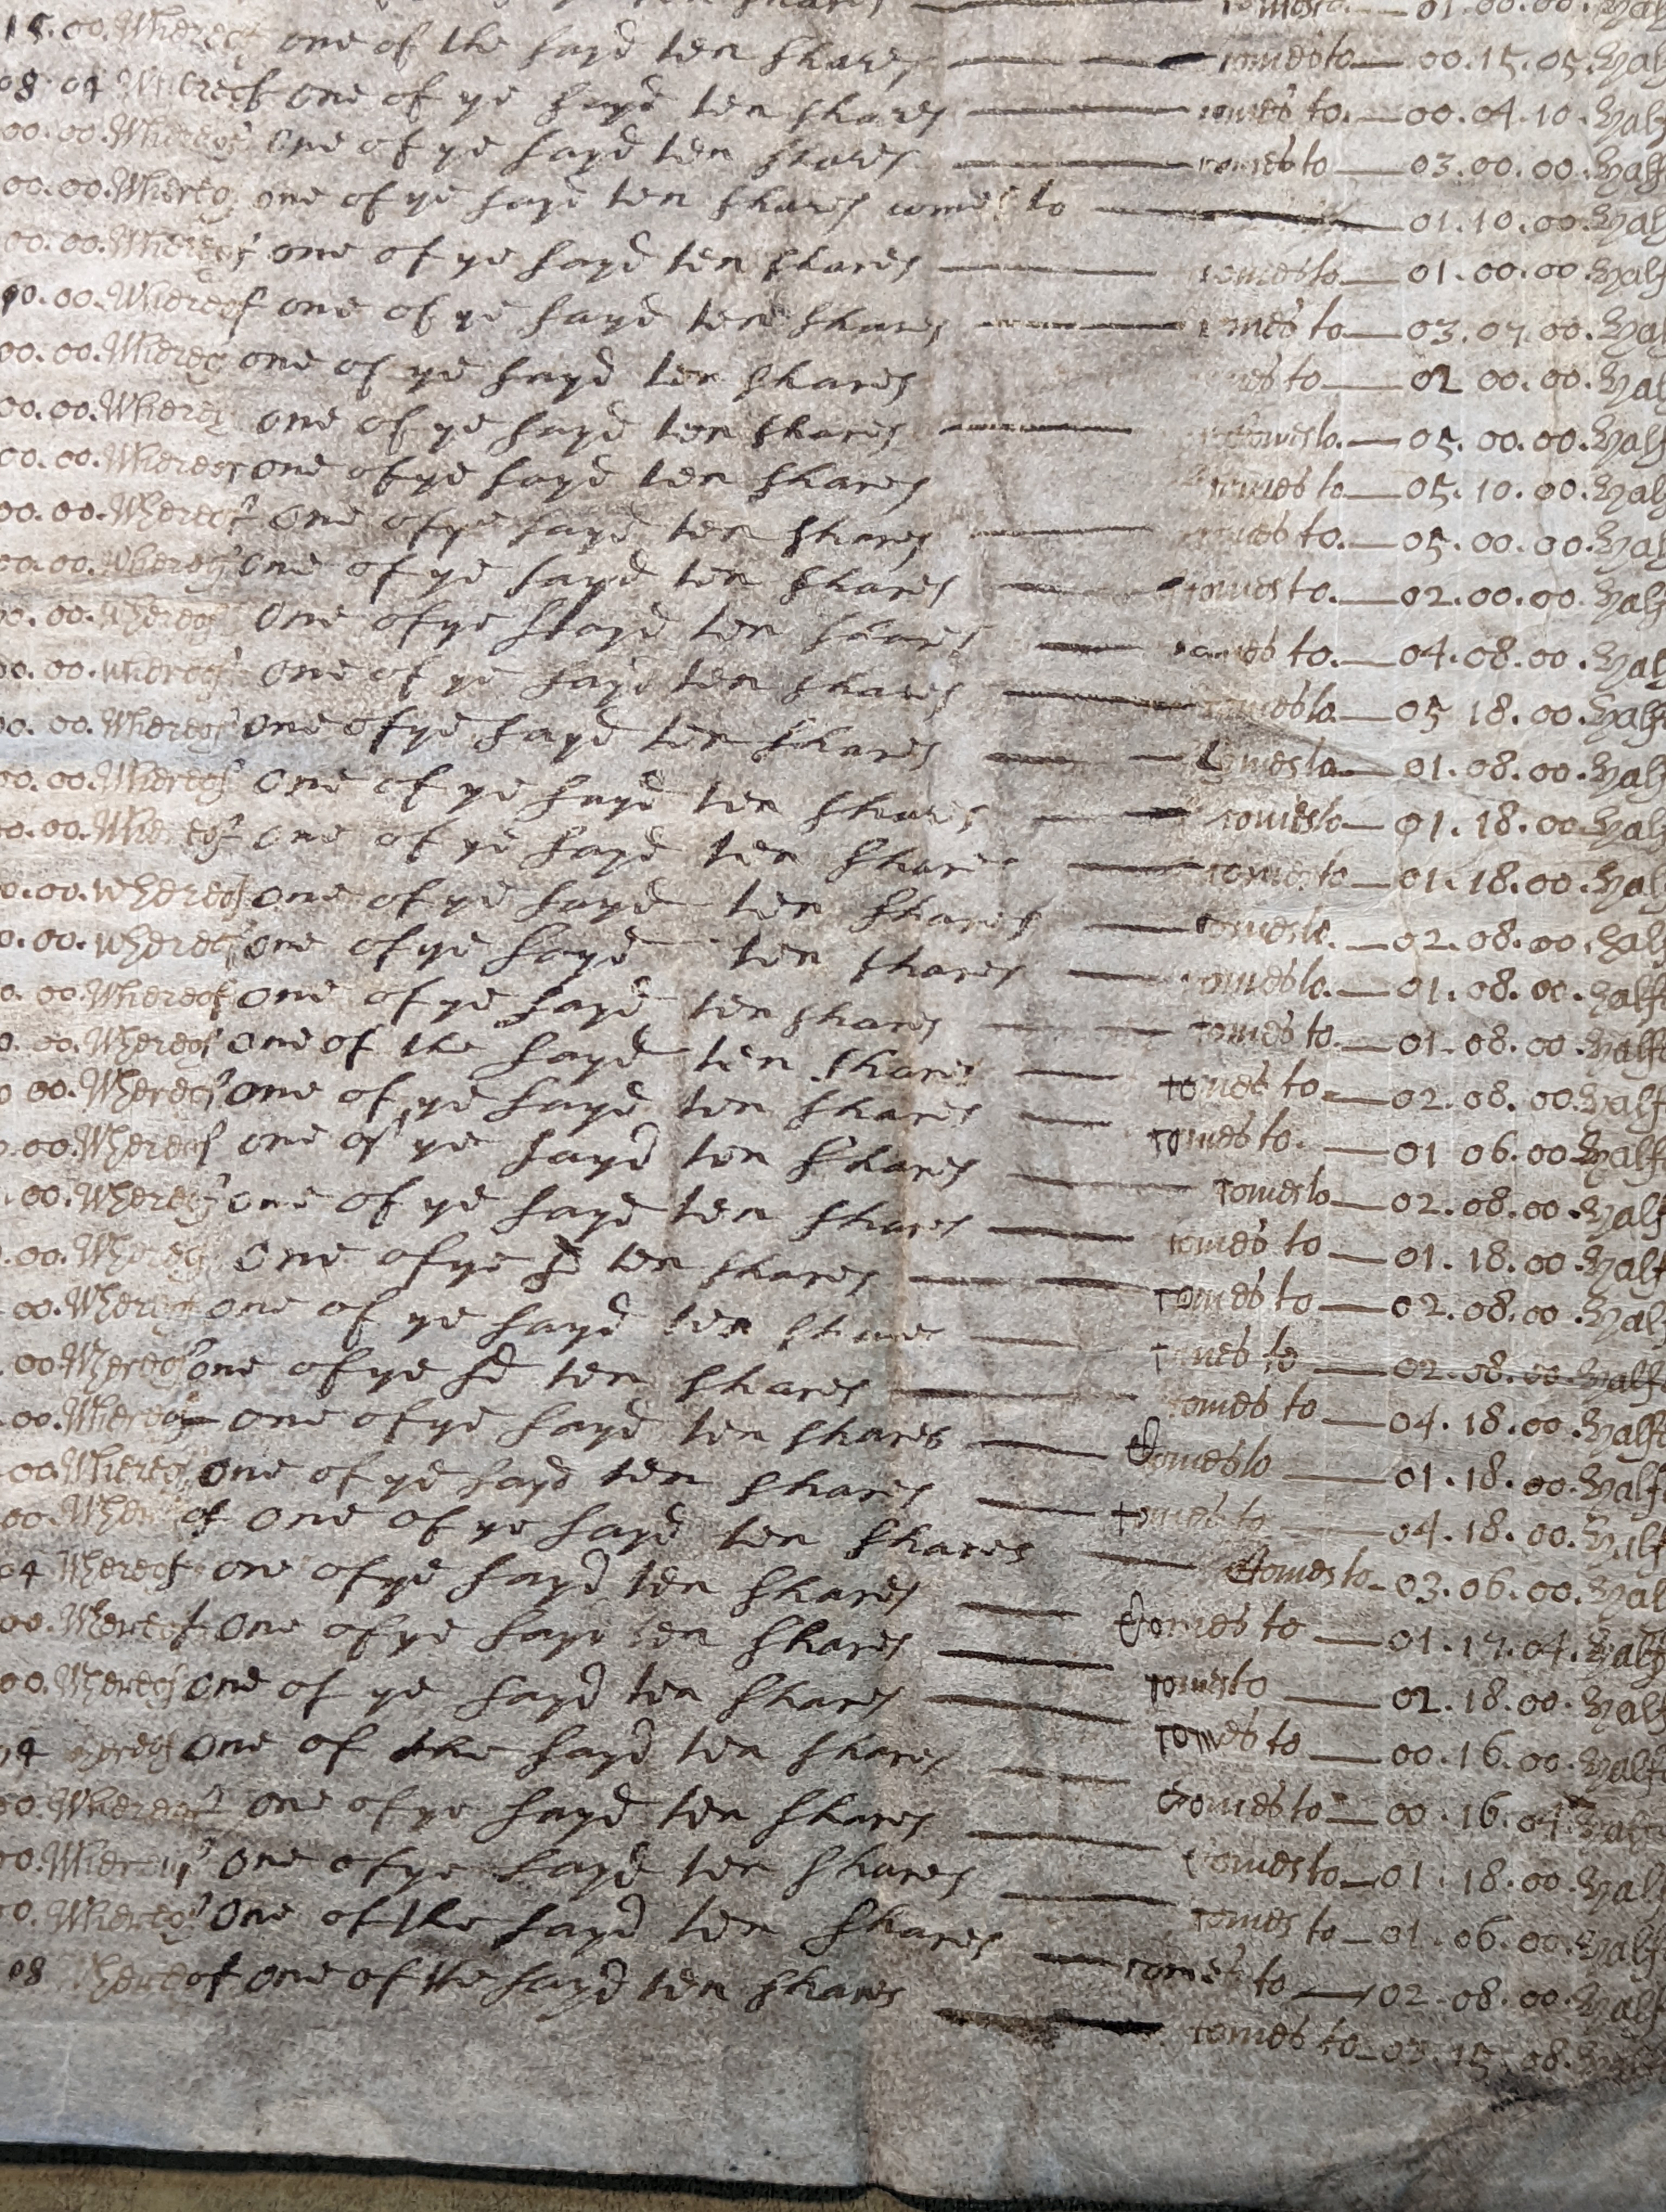 ten shares comes to 01.00.00. half
15.00. Whereof one of the sayd ten shares comes to 00.15.05. half
08 04 Whereof one of ye sayd ten shares comes to. 00.04.10. half
00.00. Whereof one of ye sayd ten shares comes to 03.00.00. half
00.00. Whereof one of ye sayd ten shares comes to 01.10.00. half
00.00. Whereof one of ye sayd ten shares comes to 01.00.00 half
10.00. Whereof one of ye sayd ten shares comes to 03.07.00. half
00.00. Whereof one of ye sayd ten shares comes to 02 00.00. half
00.00. Whereof one of ye sayd ten shares comes to. 05.00.00. half
00.00. Whereof one of ye sayd ten shares comes to 05.10.00. half
00.00. Whereof one of ye sayd ten shares comes to. 05.00.00. half
00.00. Whereof one of ye sayd ten shares comes to. 02.00.00. half
00.00. Whereof one of ye sayd ten shares comes to. 04.08.00. half
00.00. Whereof one of ye sayd ten shares comes to. 05 18.00. half
00.00. Whereof one of ye sayd ten shares comes to 01.08.00. half
00.00. Whereof one of ye sayd ten shares comes to 01.18.00 half
00.00. Whereof one of ye sayd ten shares comes to 01.18.00. half
0.00. Whereof one of ye sayd ten shares comes to. 02.08.00. half
0.00. Whereof one of ye sayd ten shares comes to. 01.08.00. half
0.00. Whereof one of ye sayd ten shares comes to. 01.08.00. half
0.00. Whereof one of the sayd ten shares comes to 02.08.00. half
0 00. Whereof one of ye sayd ten shares comes to. 01 06.00 half
0.00. Whereof one of ye sayd ten shares comes to 02.08.00. half
.00. Whereof one of ye sayd ten shares comes to 01.18.00. half
.00. Whereof one of ye sd ten shares comes to 02.08.00. half
00. Whereof one of ye sayd ten shares comes to 02.08.00 half
.00 Whereof one of ye sd ten shares comes to 04.18.00. half
.00. Whereof one of ye sayd ten shares Comes to 01.18.00. half
00. Whereof one of ye sayd ten shares comes to 04.18.00. half
00. Whereof one of ye sayd ten shares Comes to 03.06.00. half
04 Whereof one of ye sayd ten shares Comes to 01.17.04. half
00. Whereof one of ye sayd ten shares comes to 02.18.00. half
00. Whereof one of ye sayd ten shares comes to 00.16.00. half
04 Whereof one of the sayd ten shares Comes to 00.16.04 half
00. Whereof one of ye sayd ten shares Comes to 01.18.00. half
00. Whereof one of ye sayd ten shares comes to 01.06.00. half
0. Whereof one of the sayd ten shares comes to 02.08.00. half
08 Whereof one of the sayd ten shares comes to 15.08. half